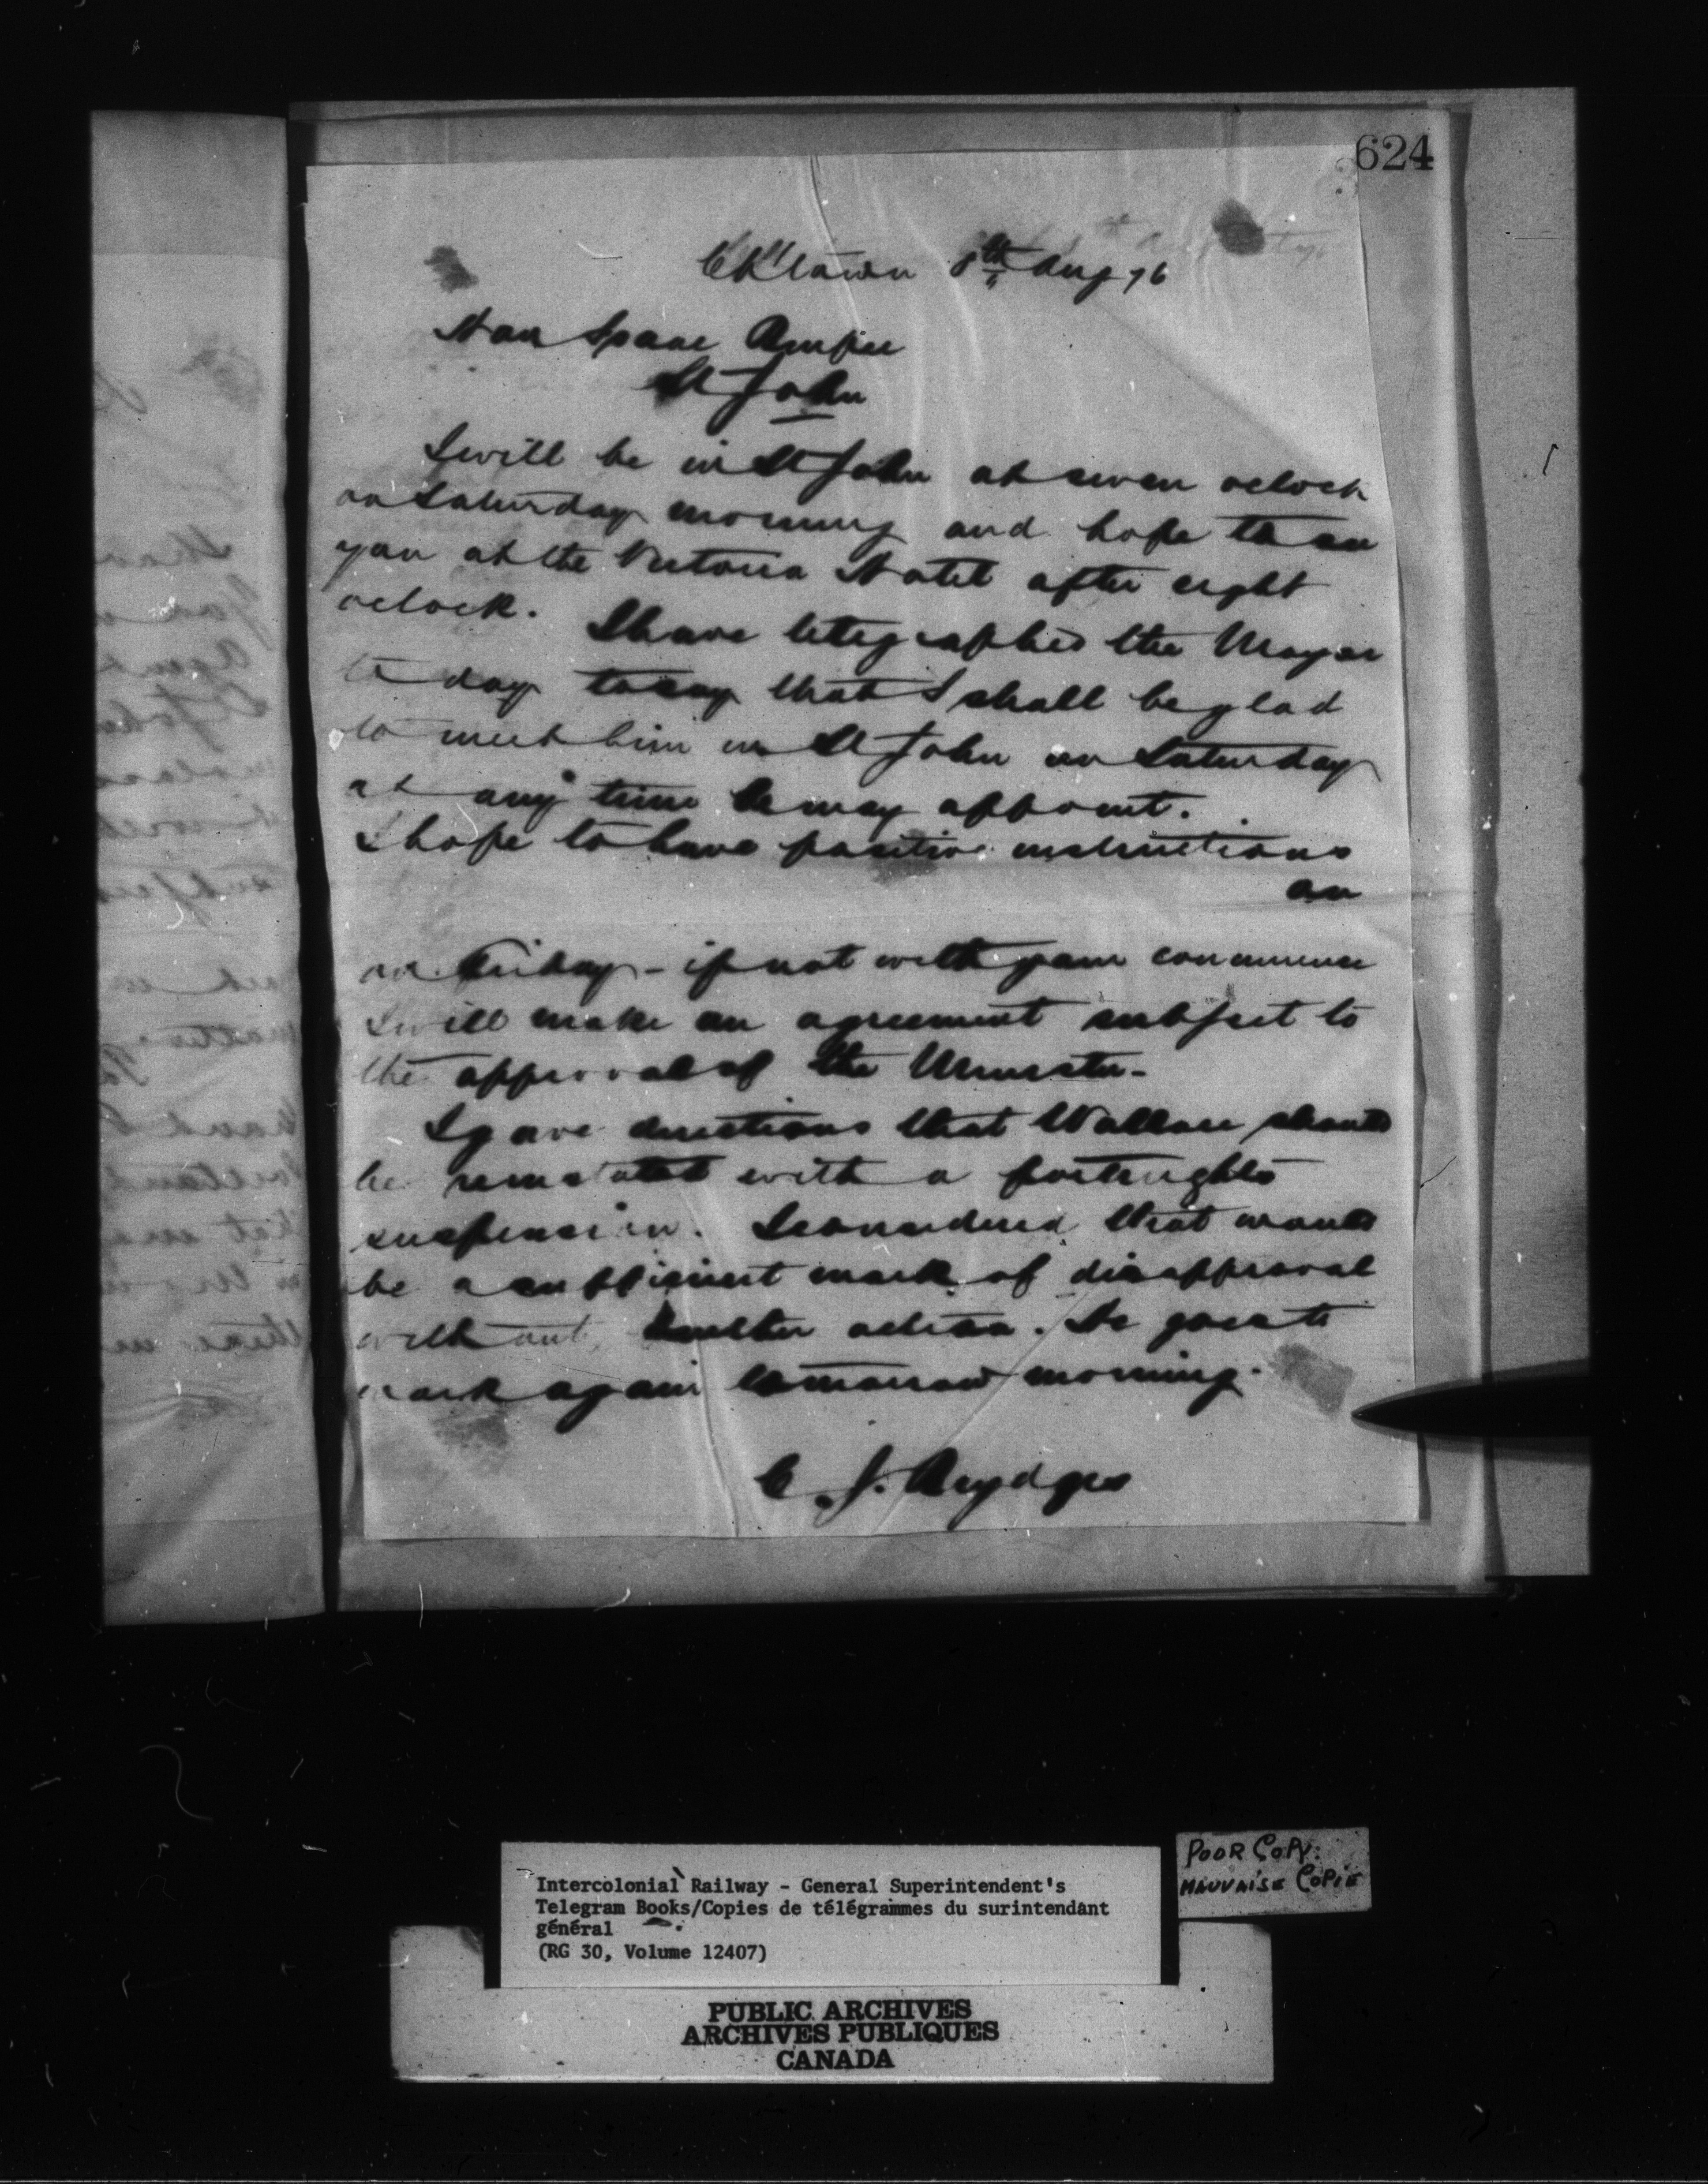 624
Ch'town 8th Aug 76
Hon Isaac Burpee
St John
I will be in St John at seven oclock
on Saturday morning and hope to see
you at the Victoria Hotel after eight
oclock. I have telegraphed the Mayor
to day to say that I shall be glad
to meet him in St John on Saturday
at any time he may appoint.
I hope to have positive instructions
on
on Friday - if not with your concurrence
I will make an agreement subject to
the approval of the Minister -
I gave directions that Wallace should
be reinstated with a fortnights
suspension. I considered that would
be a sufficient mark of disapproval
without further action. He goes to
work again tomorrow morning.
C. J. Brydges
Intercolonial Railway - General Superintendent's
Telegram Books/Copies de télégrammes du surintendant
général
(RG 30, Volume 12407)
POOR COPY:
MAUVAISE COPIE
PUBLIC ARCHIVES
ARCHIVES PUBLIQUES
CANADA